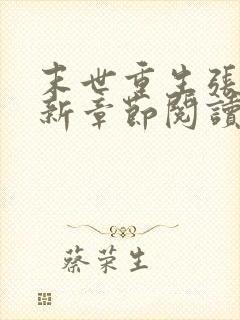 末世重生張
新章節閱讀
蔡荣生